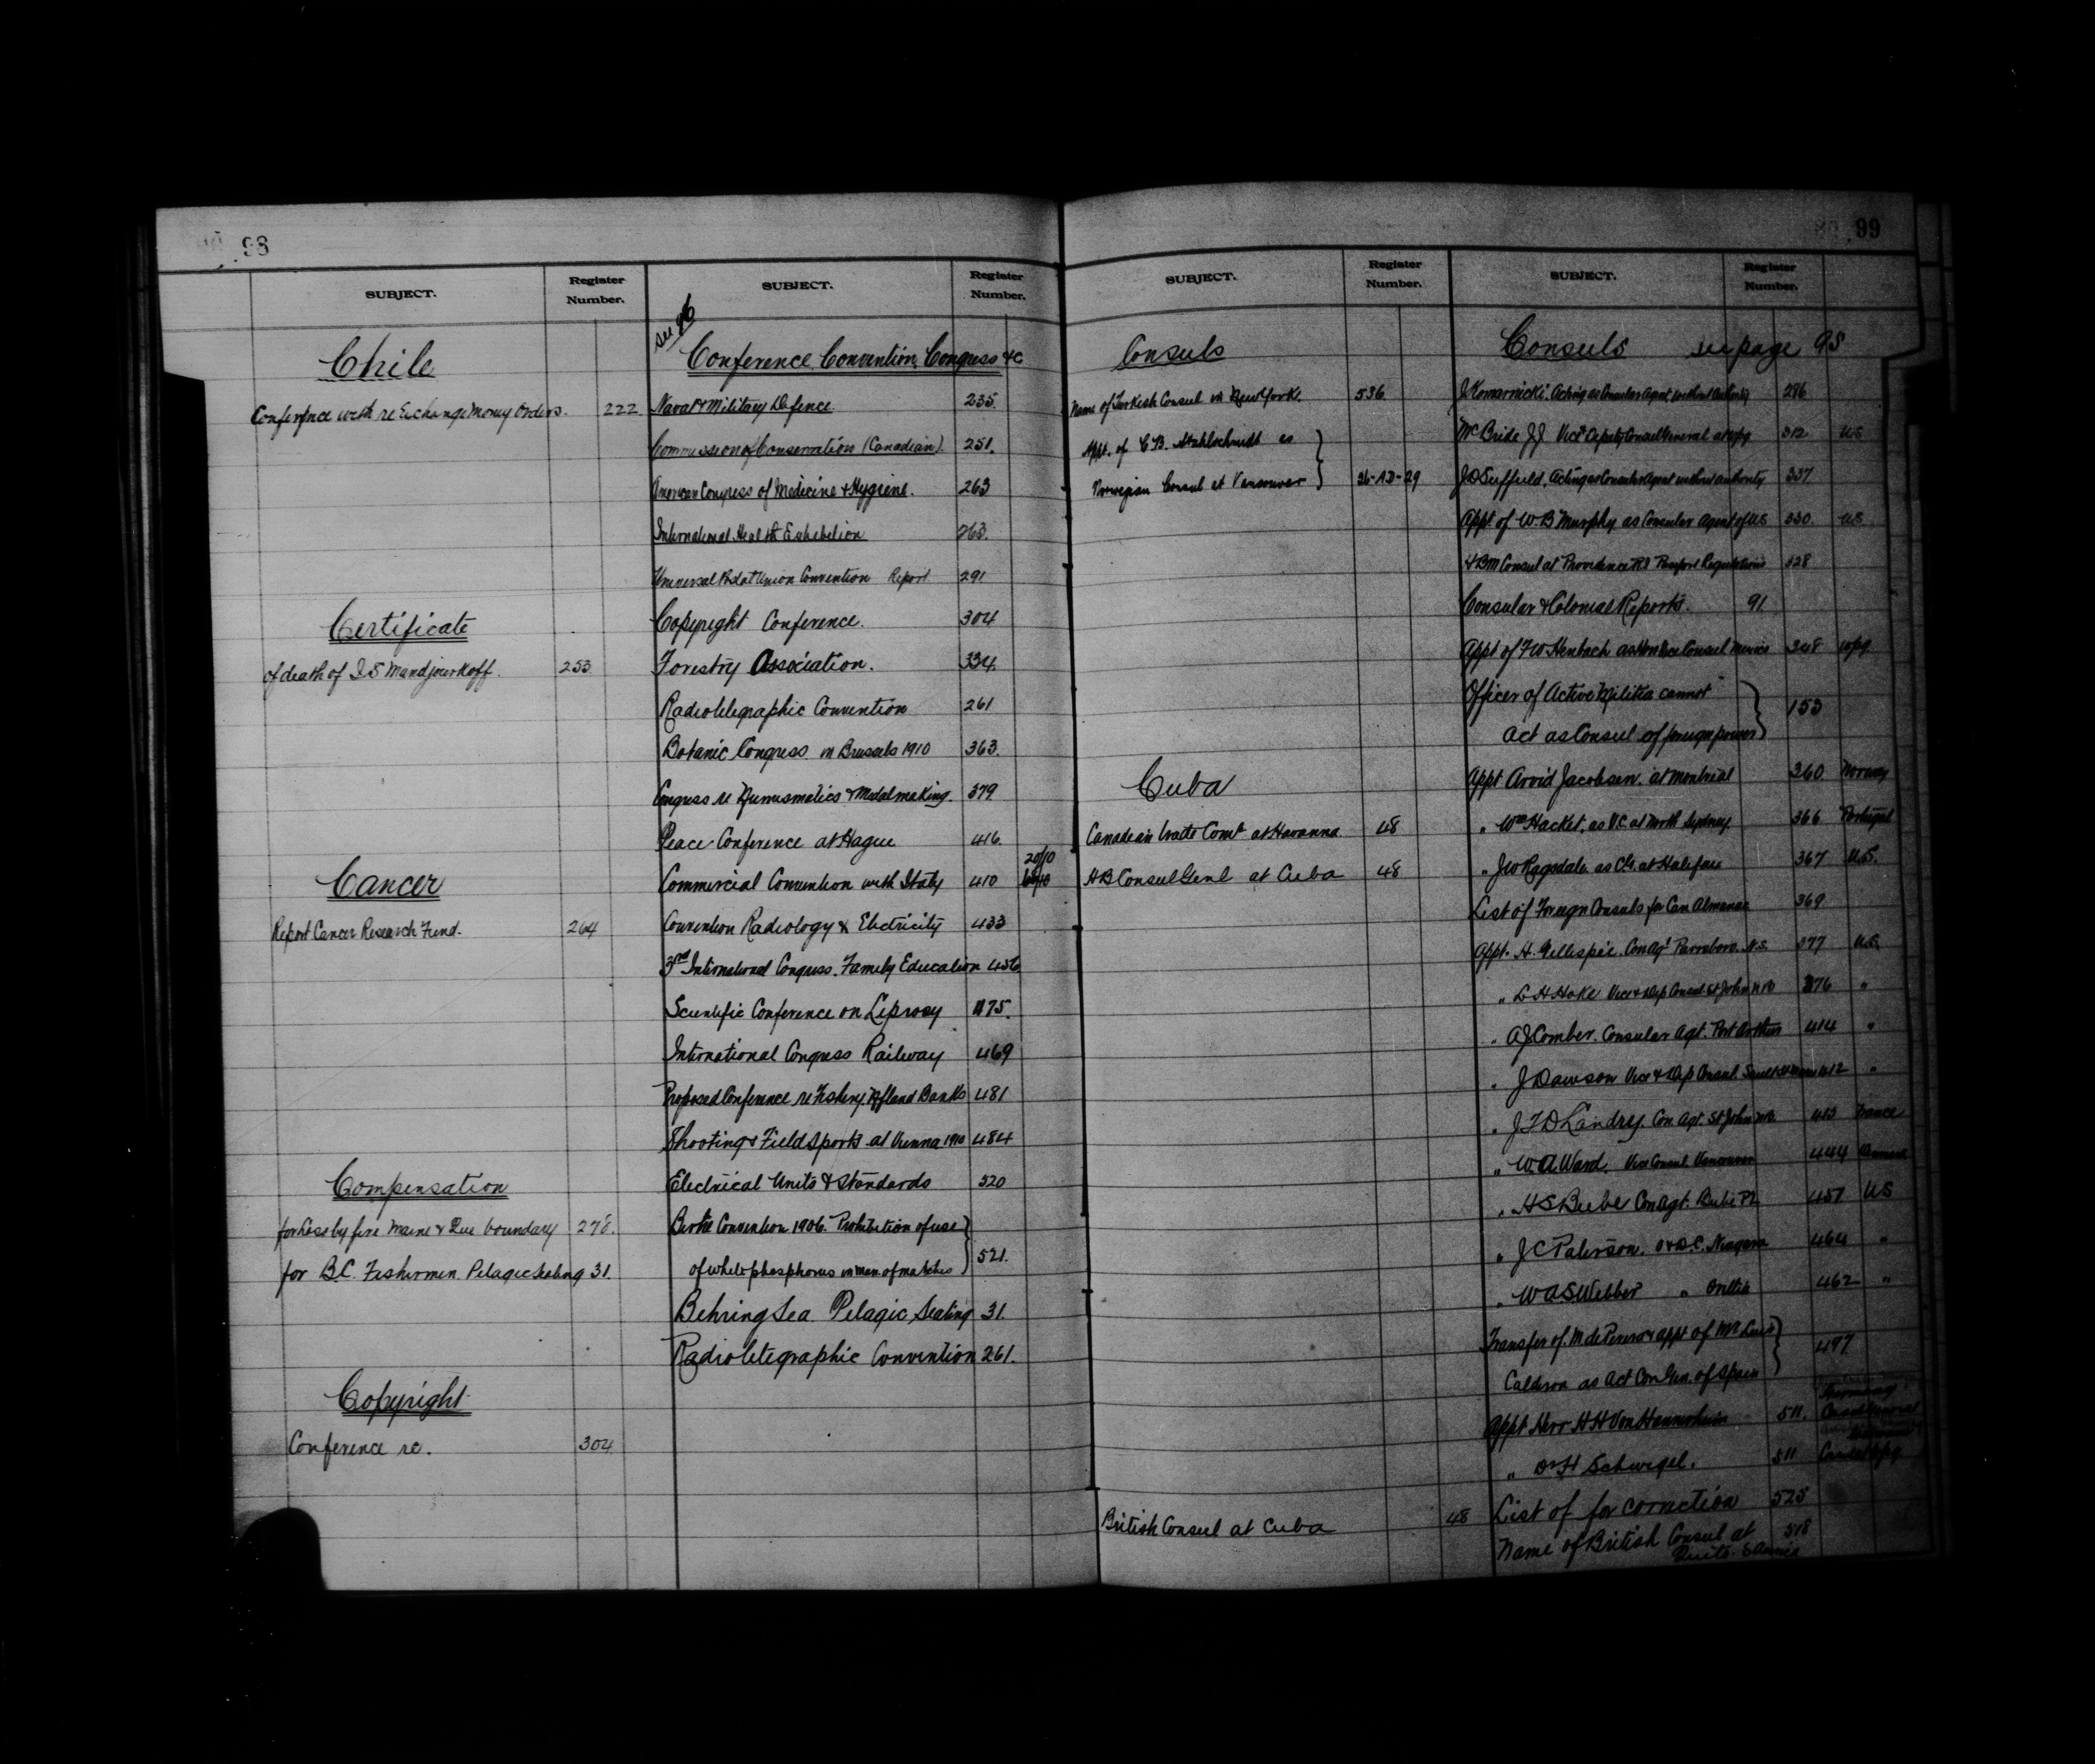 98
SUBJECT.
Register Number.
Chile
Conference with re Exchange Money Orders. 222
Certificate
of death of I S Mandjourkoff. 253
Cancer
Report Cancer Research Fund. 264
Compensation
for Loss by fire Maine & Que boundary 278.
for B.C. Fishermen. Pelagic Sealing 31.
Copyright
Conference re. 304
SUBJECT.
Register Number.
see 96
Conference, Convention, Congress &c
Naval & Military Defence 235.
Commission of Conservation (Canadian). 251.
American Congress of Medicine & Hygiene. 263
International Health Exhibition 263.
Universal Postal Union Convention Report 291
Copyright Conference. 304
Forestry Association. 334.
Radiotelegraphic Convention 261
Botanic Congress in Brussels 1910 363.
Congress re Numismatics & Medalmaking. 379
Peace Conference at Hague 416.
20/10
Commercial Convention with Italy 410
Convention Radiology & Electricity 433
3rd International Congress. Family Education 456
Scientific Conference on Leprosy 175.
International Congress Railway 469
Proposed Conference re Fishery Nfland Banks 481
Shooting & Field Sports at Vienna 1910 484
Electrical Units & Standards 520
Berne Convention 1906. Prohibition of use
of white phosphorus in man of matches 521.
Behring Sea Pelagic Sealing 31.
Radiotelegraphic Convention 261.
SUBJECT.
Register Number.
Consuls
Name of Turkish Consul in New York. 536
Appt. of C.B. Stahlschmidt as
Norwegian Consul at Vancouver 36-AD-29
Cuba
Canadian Trade Comr at Havanna 48
H B Consul Genl at Cuba 48
British Consul at Cuba 48
99
SUBJECT.
Register Number.
Consuls see page 95
J Komarnicki. Acting as Consular Agent without Authority 286
McBride J.J. Vice & Deputy Consul General at Wpg 312 US
J D Suffield, Acting as Consular Agent without authority 337
Appt of W. B Murphy as Consular Agent of US 330. US
H B M Consul at Providence R I Passport Regulations 328
Consular & Colonial Reports. 91
Appt of F W Heubach as Hon Vice Consul Mexico 348 Wpg
Officer of Active Militia cannot
Act as Consul of foreign power 153
Appt Arvid Jacobsen. at Montreal 360 Norway
" Wm Hacket, as V.C. at North Sydney. 366 Portugal
" J W Ragsdale as C.G. at Halifax 367 U.S.
List of Foreign Consuls for Can Almanac 369
Appt. H. Gillespie. Con Agt Parrsboro. N.S. 377 U.S.
" L H Hoke Vice & Dep Consul St John N B 376 "
" A J Comber. Consular Agt. Port Arthur 414 "
" J Dawson Vice & Dep Consul. 412 "
" J T D Landry. Con Agt. St John NB. 413 France
" W. A. Ward. Vice Consul Vancouver 444
" H S Beebe Con Agt. Beebe Pl 457 US
" J C Paterson. Niagara 464 "
" W A S Webber " Orillia 462 "
Transfer of M de & appt of Mr Luis
Calderon as Act Con Gen. of Spain 497
Appt Herr H H Von 511.
" Dr H Schwegel. 511
List of for correction 525
Name of British Consul at 518
Quito.